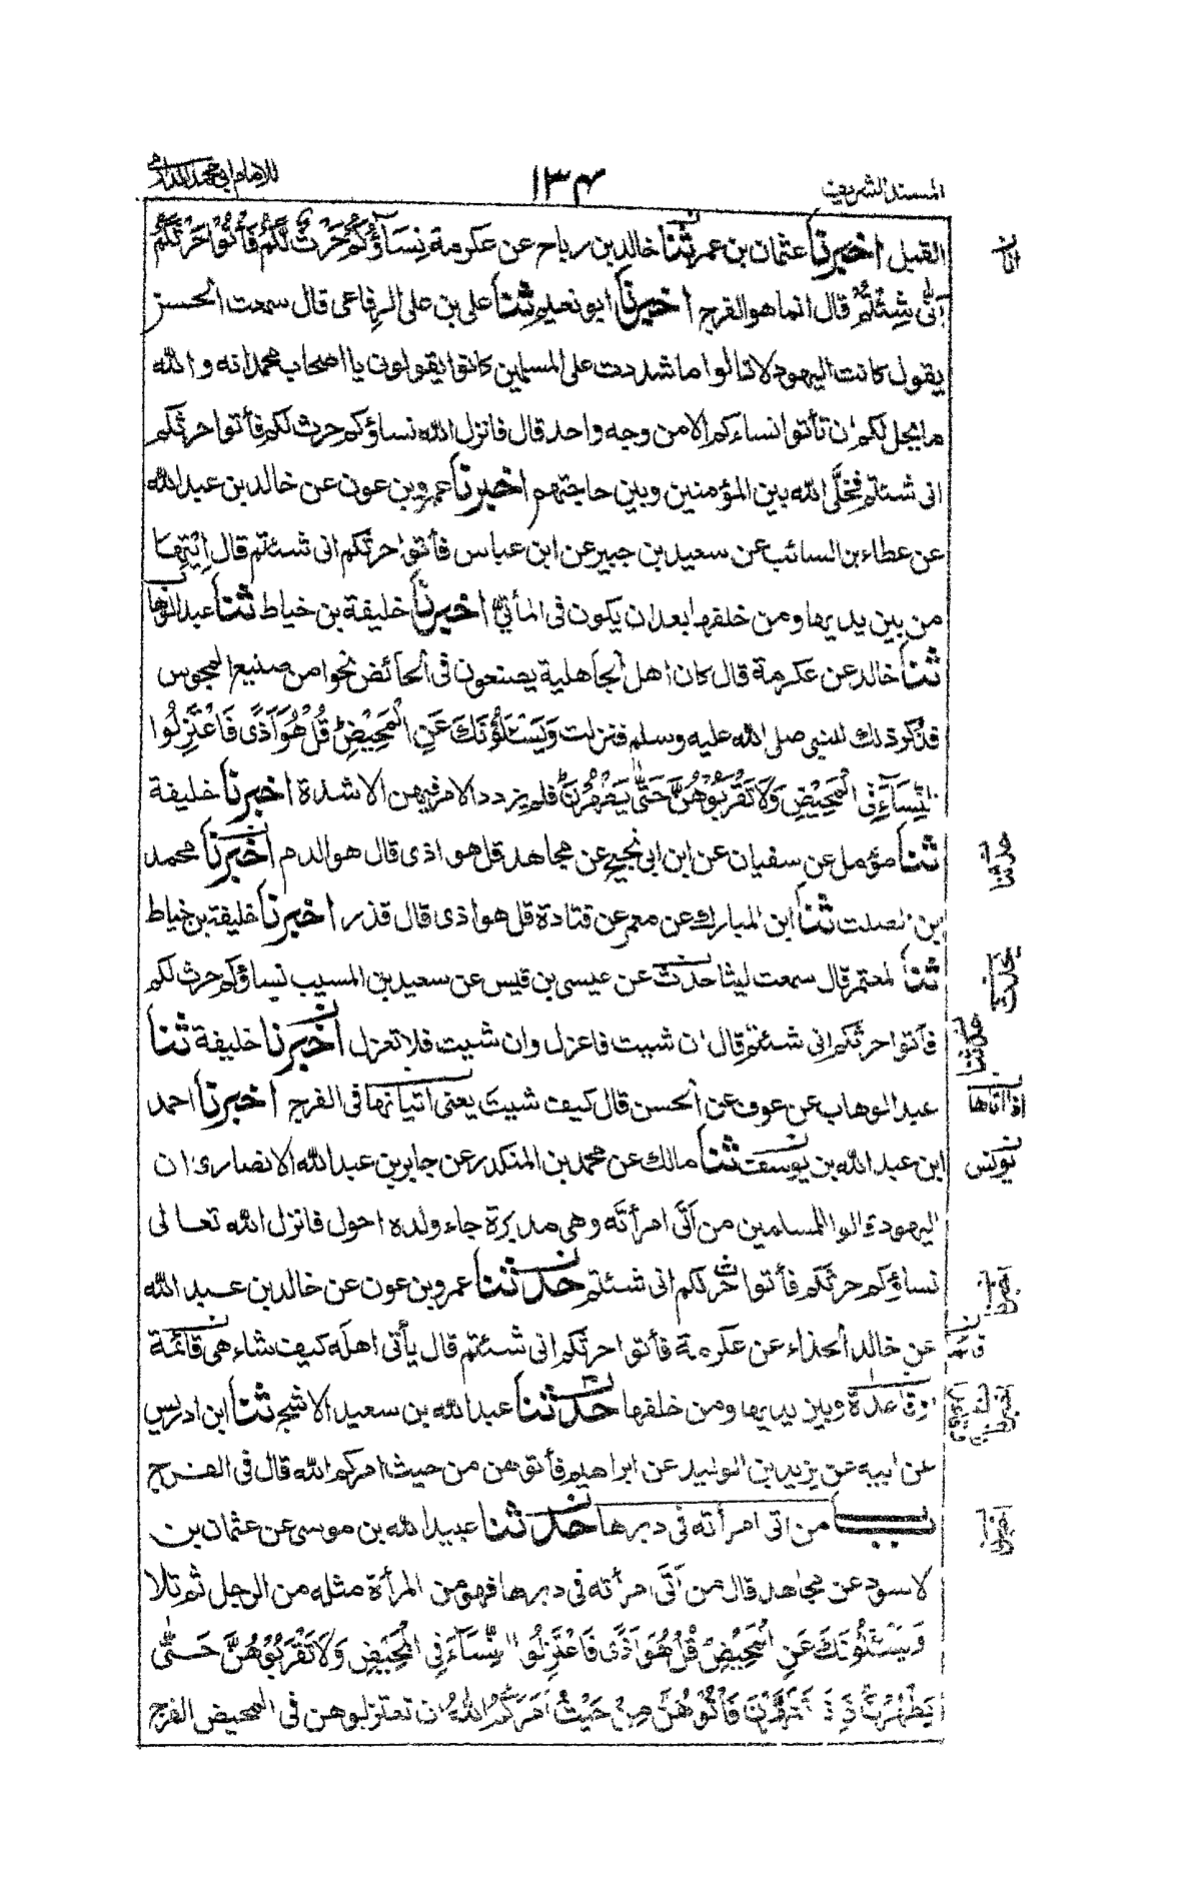 المسند الشريف ١٣٤ للامام ابي محمد الدارمي
القبل اخبرنا عثمان بن عمر ثنا خالد بن رباح عن عكرمة نِسَآؤُكُمْ حَرْثٌ لَّكُمْ فَأْتُوْا حَرْثَكُمْ
اَنّٰى شِئْتُمْ قال انما هو الفرج اخبرنا ابو نعيم ثنا على بن على الرفاعى قال سمعت الحسن
يقول كانت اليهود لا تالوا ما شددت على المسلمين كانوا يقولون يا اصحاب محمد انه والله
ما يحل لكم ان تأتوا نساءكم الا من وجه واحد قال فانزل الله نساؤكم حرث لكم فأتوا حرثكم
انى شئتم فخلَّى الله بين المؤمنين وبين حاجتهم اخبرنا عمرو بن عون عن خالد بن عبد الله
عن عطاء بن السائب عن سعيد بن جبير عن ابن عباس فأتوا حرثكم انى شئتم قال اِئتِها
من بين يديها ومن خلفها بعد ان يكون فى المأتىّ اخبرنا خليفة بن خياط ثنا عبد الوهاب
ثنا خالد عن عكرمة قال كان اهل الجاهلية يصنعون فى الحائض نحوا من صنيع المجوس
فذكر ذلك للنبى صلى الله عليه وسلم فنزلت وَيَسْئَلُوْنَكَ عَنِ الْمَحِيْضِ قُلْ هُوَ اَذًى فَاعْتَزِلُوا
النِّسَآءَ فِى الْمَحِيْضِ وَلَا تَقْرَبُوْهُنَّ حَتّٰى يَطْهُرْنَ فلم يزدد الامر فيهن الا شدة اخبرنا خليفة
ثنا مؤمل عن سفيان عن ابن ابى نجيح عن مجاهد قل هو اذى قال هو الدم اخبرنا محمد
بن الصلت ثنا ابن المبارك عن معمر عن قتادة قل هو اذى قال قذر اخبرنا خليفة بن خياط
ثنا المعتمر قال سمعت ليثا حدث عن عيسى بن قيس عن سعيد بن المسيب نساؤكم حرث لكم
فأتوا حرثكم انى شئتم قال ان شيت فاعزل وان شيت فلا تعزل اخبرنا خليفة ثنا
عبد الوهاب عن عوف عن الحسن قال كيف شيتَ يعنى اتيانها فى الفرج اخبرنا احمد
ابن عبد الله بن يوسف ثنا مالك عن محمد بن المنكدر عن جابر بن عبد الله الانصارى ان
اليهود قالوا للمسلمين من اَتَى امرأتَه وهى مدبرة جاء ولده احول فانزل الله تعالى
نساؤكم حرثكم فأتوا حرثكم انى شئتم حدثنا عمرو بن عون عن خالد بن عبد الله
عن خالد الحذاء عن عكرمة فأتوا حرثكم انى شئتم قال يأتى اهلَه كيف شاء هى قائمة
او قاعدة وبين يديها ومن خلفها حدثنا عبد الله بن سعيد الاشج ثنا ابن ادريس
عن ابيه عن يزيد بن الوليد عن ابراهيم فأتوهن من حيث امركم الله قال فى الفرج
باب من اتى امرأته فى دبرها حدثنا عبيد الله بن موسى عن عثمان بن
الاسود عن مجاهد قال من اَتَى امرأته فى دبرها فهو من المرأة مثله من الرجل ثم تلا
وَيَسْئَلُوْنَكَ عَنِ الْمَحِيْضِ قُلْ هُوَ اَذًى فَاعْتَزِلُوا النِّسَآءَ فِى الْمَحِيْضِ وَلَا تَقْرَبُوْهُنَّ حَتّٰى
يَطْهُرْنَ فَاِذَا تَطَهَّرْنَ فَأْتُوْهُنَّ مِنْ حَيْثُ اَمَرَكُمُ اللّٰهُ ان تعتزلوهن فى المحيض الفرج
حدثنا
يحدث
حدثنا
يونس
اخبرنا
اخبرنا
اخبرنا